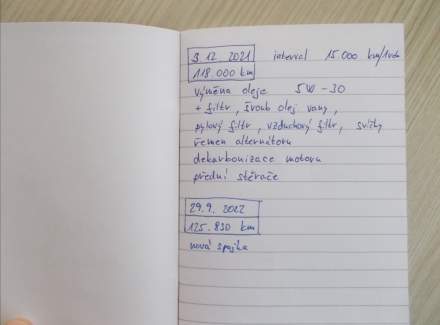 3 12 2021 interval 15 000 km/1rok
118.000 km
výměna oleje 5W-30
+ filtr, šroub olej vany,
pylový filtr, vzduchový filtr, svíčky
řemen alternátoru
dekarbonizace motoru
přední stěrače
29.9. 2022
125.830 km
nová spojka